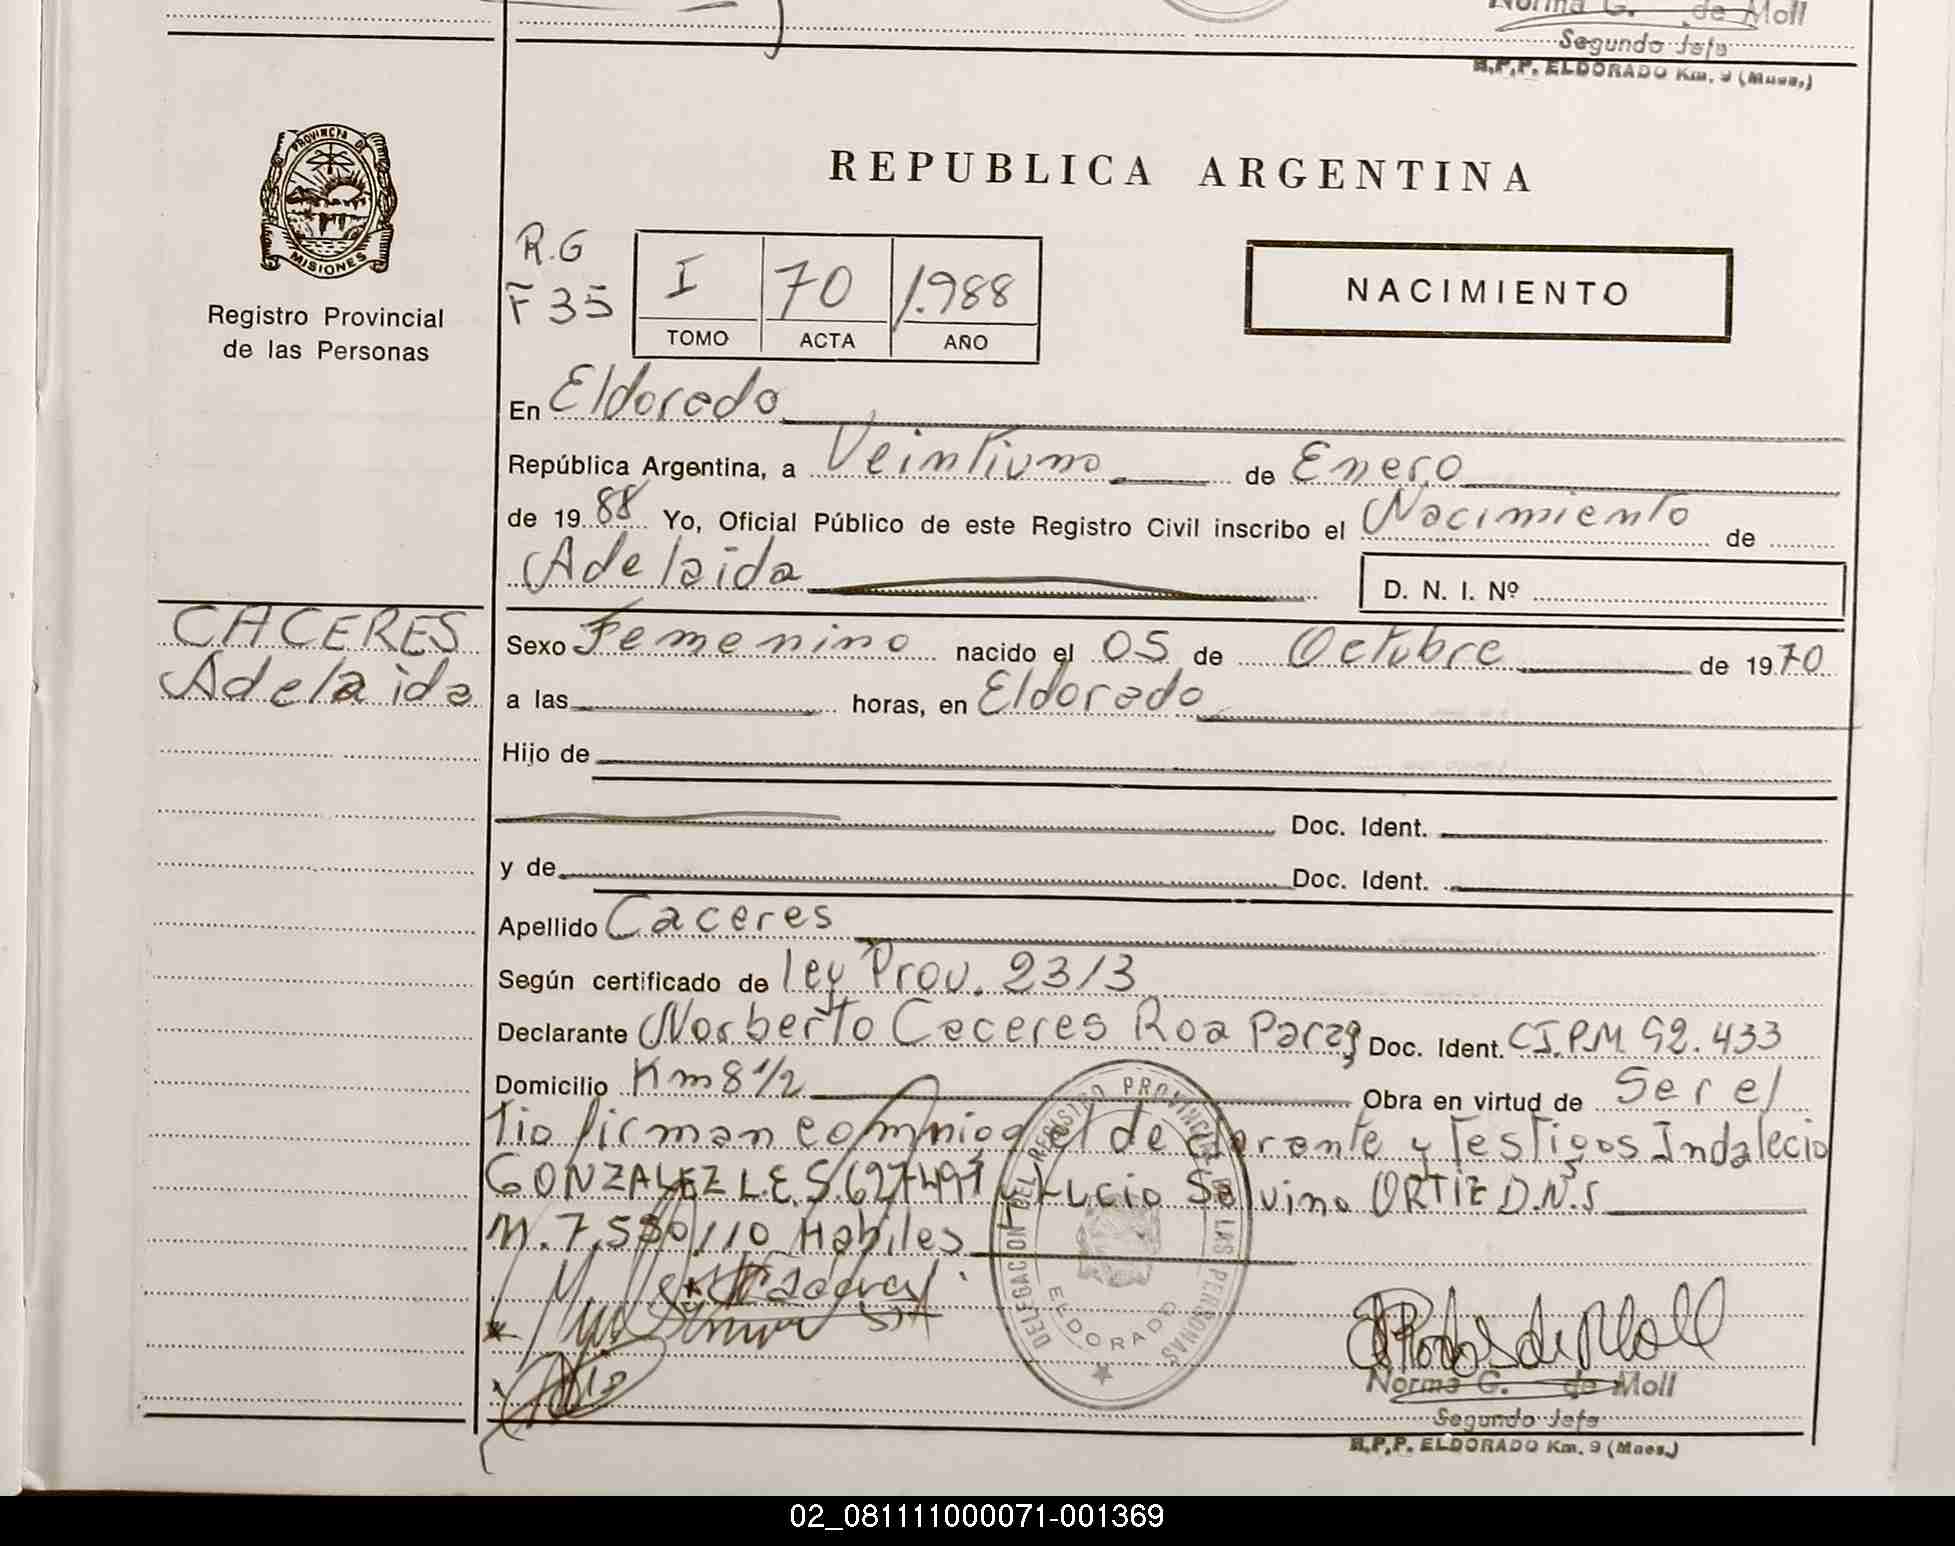 Norma G. de Moll
Segundo Jefe
R.P.P. ELDORADO Km. 9 (Mnes.)
PROVINCIA DE
MISIONES
Registro Provincial
de las Personas
REPUBLICA ARGENTINA
R.G
F 35
I 70 1.988
TOMO ACTA AÑO
NACIMIENTO
En Eldorado
República Argentina, a Veintiuno de Enero
de 19 88 Yo, Oficial Público de este Registro Civil inscribo el Nacimiento de
Adelaida D. N. I. Nº
CACERES
Adelaida
Sexo Femenino nacido el 05 de Octubre de 19 70
a las horas, en Eldorado
Hijo de
Doc. Ident.
y de Doc. Ident.
Apellido Caceres
Según certificado de ley Prov. 2313
Declarante Norberto Caceres Roa Parag Doc. Ident. C.I.P.M. 92.433
Domicilio Km 8 1/2 Obra en virtud de Ser el
Tio firman conmigo el declarante y testigos Indalecio
GONZALEZ L.E. 5.627.497 y Lucio Salvino ORTIZ D.N.S
M. 7.550.110 Habiles
DELEGACION DEL REGISTRO PROVINCIAL DE LAS PERSONAS
ELDORADO
Norma G. de Moll
Segundo Jefe
R.P.P. ELDORADO Km. 9 (Mnes.)
02_081111000071-001369